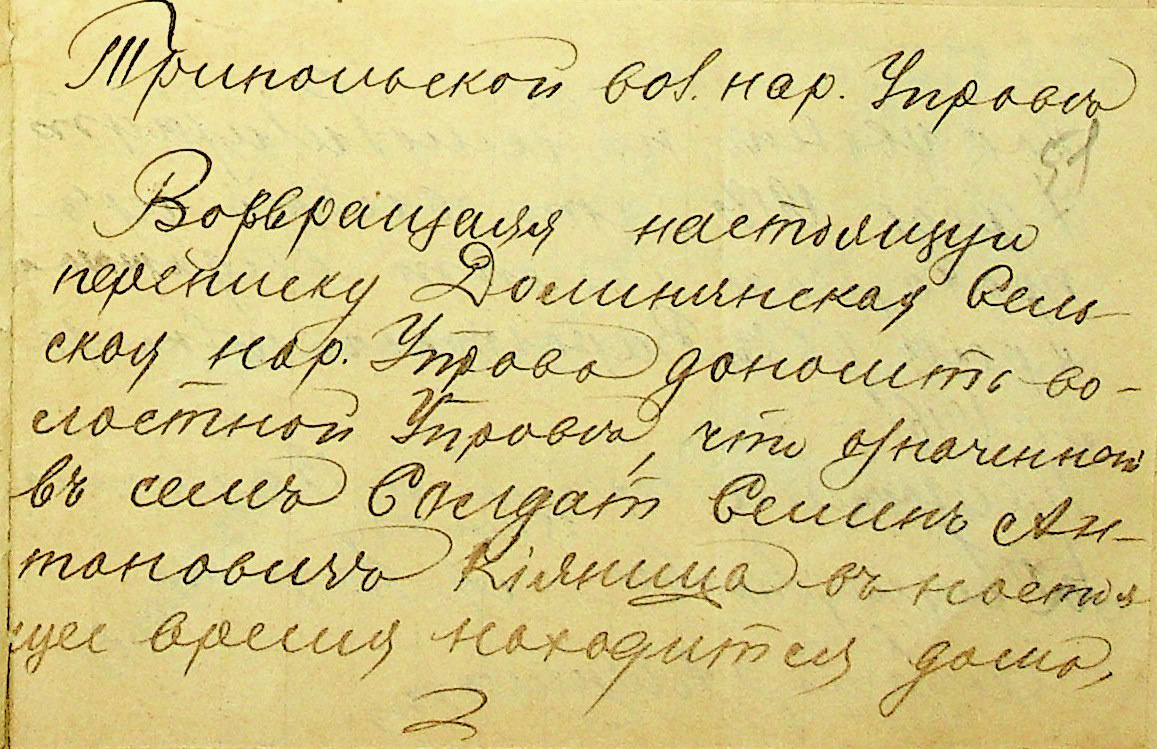 Трипольской вол. нар. Управѣ
Возвращая настоящую
переписку Долинянская Сель-
ская нар. Управа доноситъ во-
лостной Управѣ, что означенной
въ семъ Солдат Семенъ Ан-
тоновичъ Кіяница въ настоя
щее время находится дома,